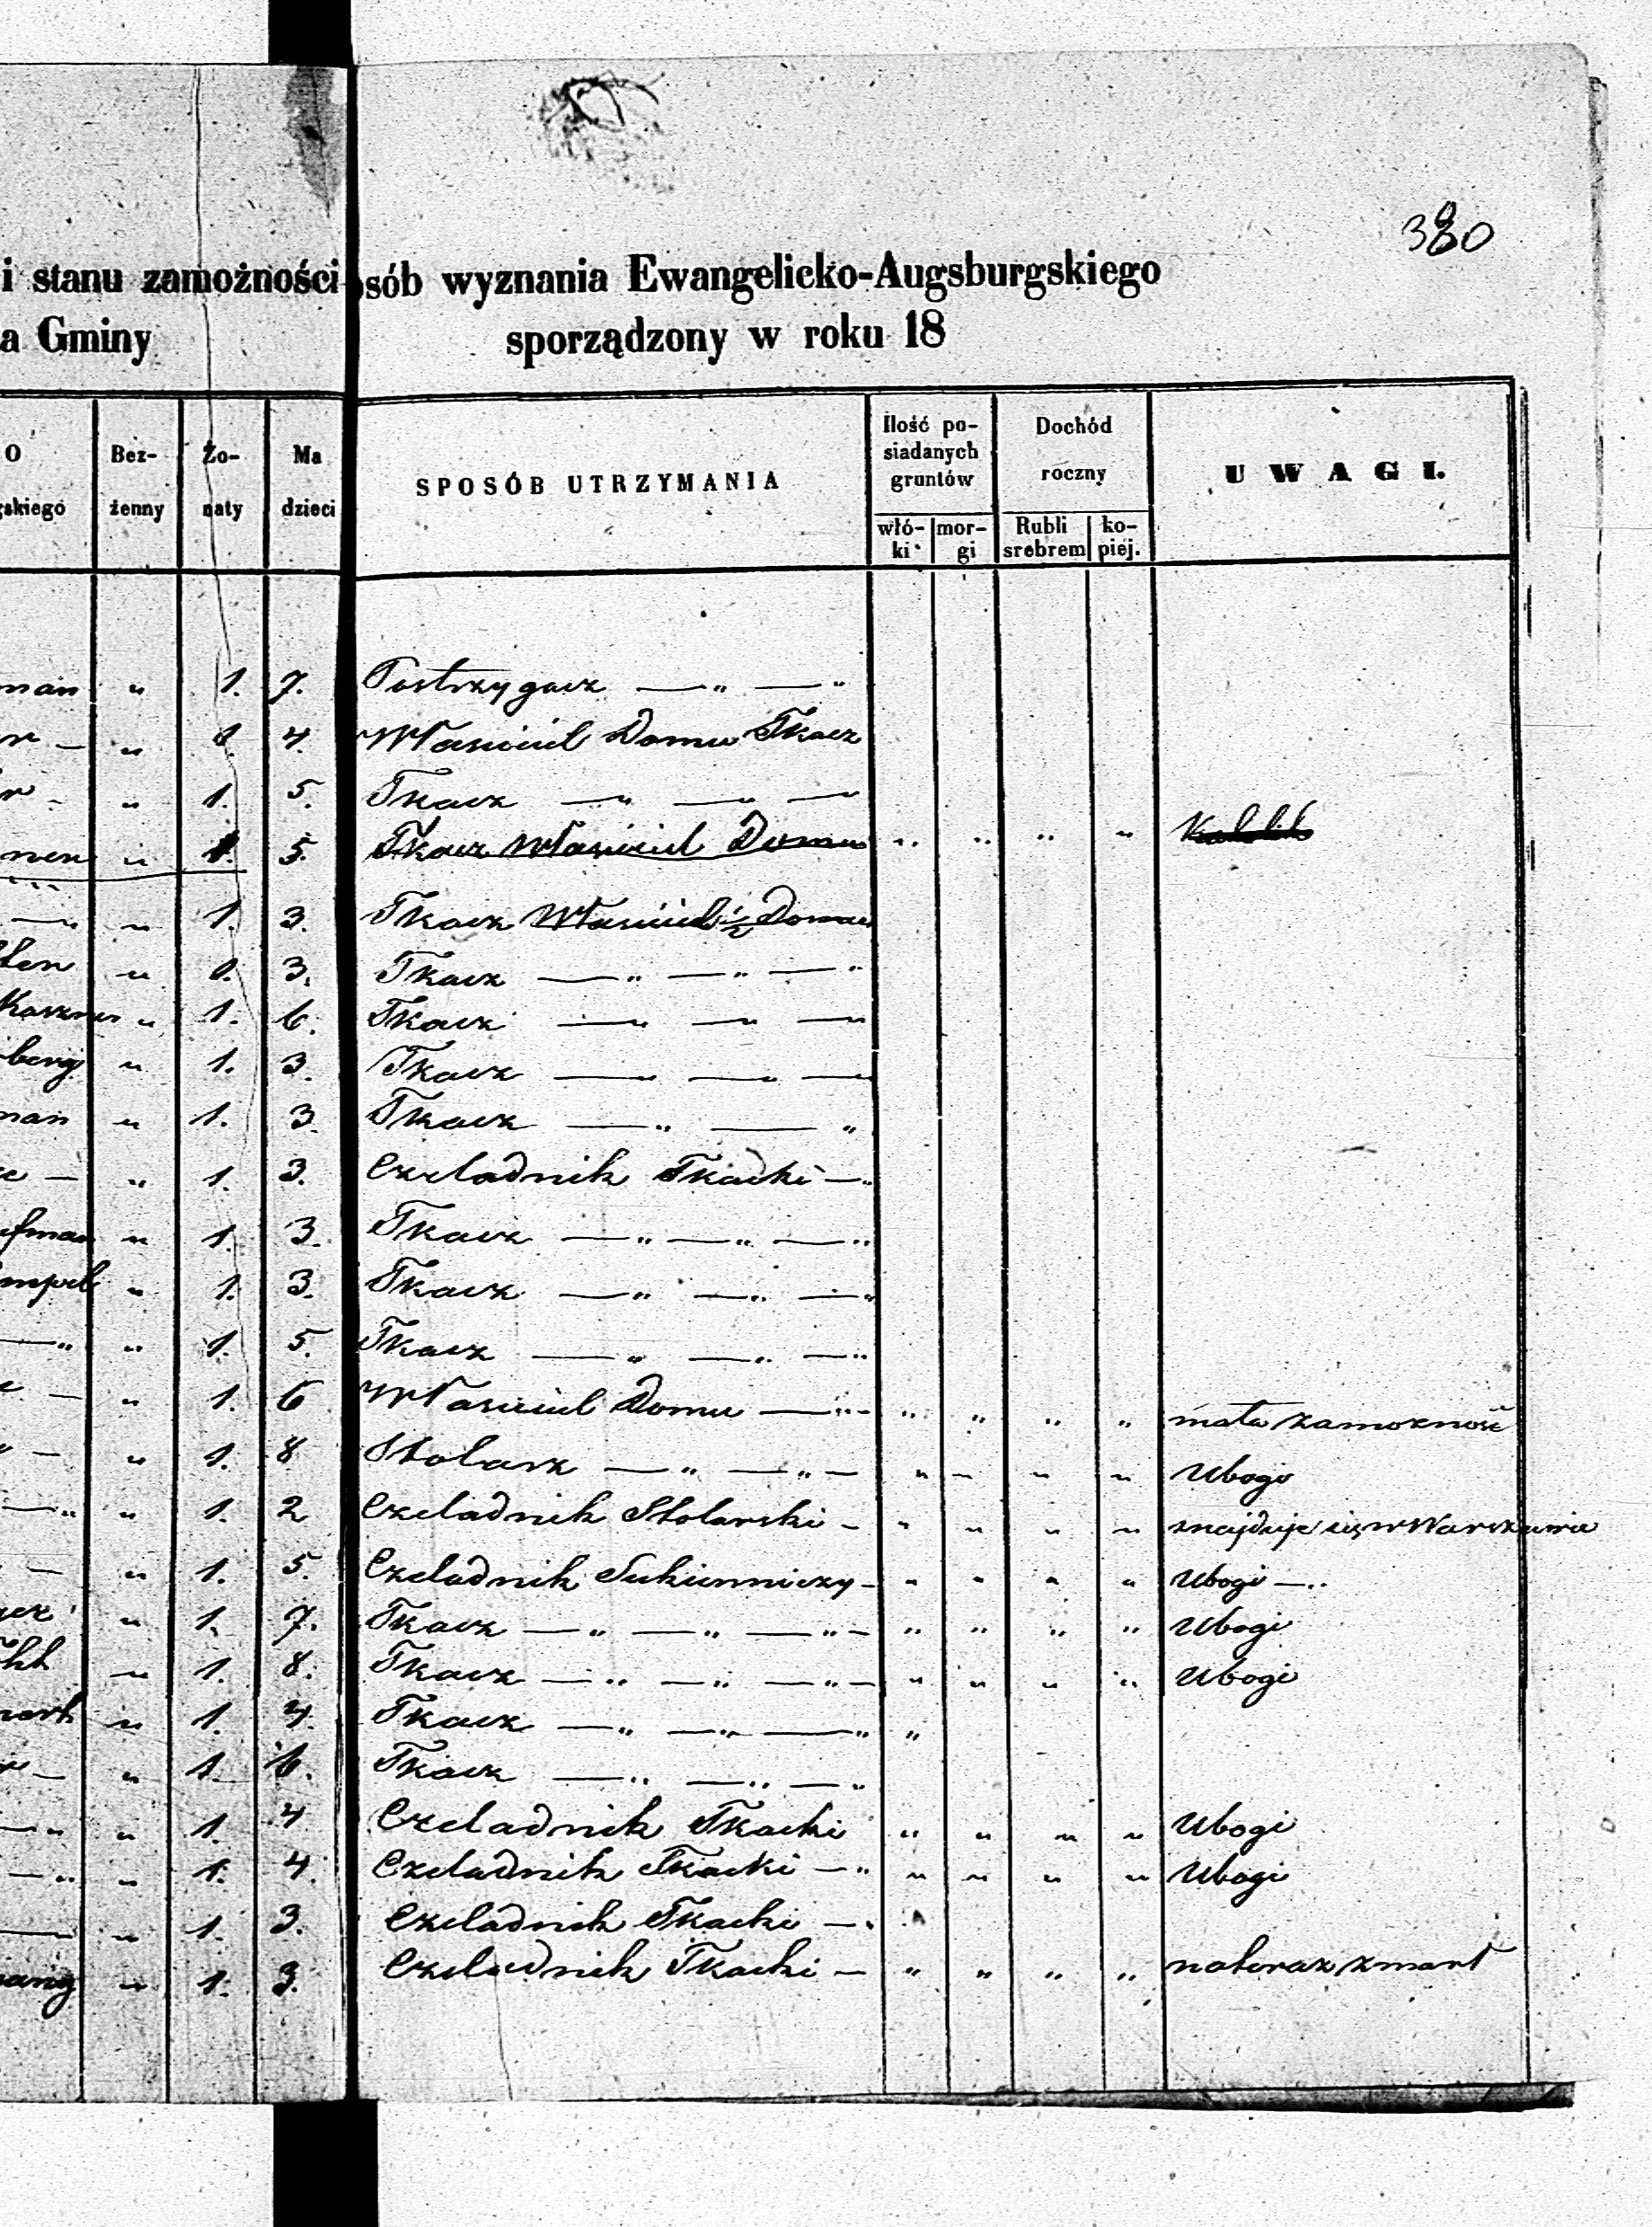 380
i stanu zamożności osób wyznania Ewangelicko-Augsburgskiego
a Gminy sporządzony w roku 18
O skiego Bez-żenny Żo-naty Ma dzieci SPOSÓB UTRZYMANIA Ilość po-siadanych gruntów Dochód roczny UWAGI.
włó-ki mor-gi Rubli srebrem ko-piej.
man " 1. 7. Postrzygacz — " — "
r — " 1. 4. Właściciel Domu Tkacz
r - " 1. 5. Tkacz — " — " —
nen " 1. 5. Tkacz Właściciel Domu " " " "
— " " 1. 3. Tkacz Właściciel ½ Domu
ten " 1. 3. Tkacz — " — " — "
" 1. 6. Tkacz — " — " — "
berg " 1. 3. Tkacz — " — " —
man " 1. 3. Tkacz — " — "
e — " 1. 3. Czeladnik Tkacki — "
fman " 1. 3. Tkacz — " — " — "
mpel " 1. 3. Tkacz — " — " — "
— " " 1. 5. Tkacz — " — " — "
e — " 1. 6 Właściciel Domu — " - " " " " mała zamożność
" — " 1. 8 Stolarz — " — " — " — " " Ubogi
— " " 1. 2 Czeladnik Stolarski - " " " " znajduje się w Warszawie
— " 1. 5. Czeladnik Sukienniczy - " " " " Ubogi — "
" 1. 7. Tkacz — " — " — " — " " " " Ubogi
cht " 1. 8. Tkacz — " — " — " — " " " " Ubogi
" 1. 4. Tkacz — " — " — " "
r — " 1. 6. Tkacz — " — " — "
— " " 1. 4 Czeladnik Tkacki " " " " Ubogi
— " " 1. 4. Czeladnik Tkacki — " " " " " Ubogi
— " 1. 3. Czeladnik Tkacki — "
ang " 1. 3. Czeladnik Tkacki — " " " " na teraz zmarł